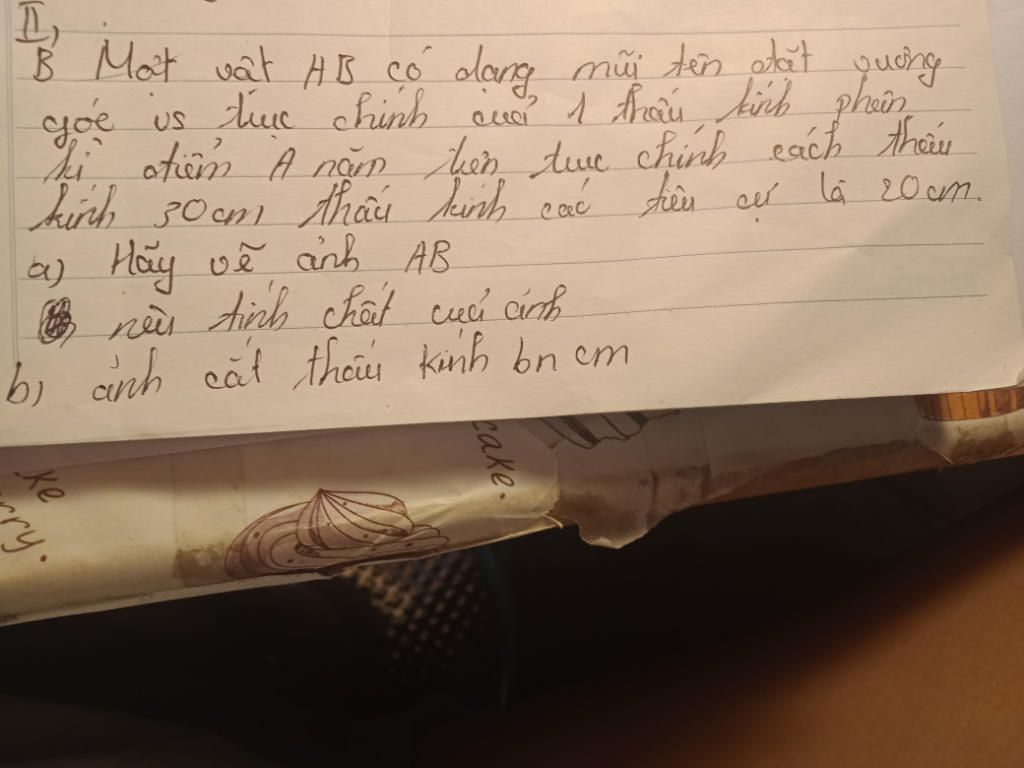 II,
B Một vật AB có dạng mũi tên đặt vuông
góc vs trục chính của 1 thấu kính phân
kì điểm A nằm trên trục chính cách thấu
kính 30cm thấu kính các tiêu cự là 20cm.
a) Hãy vẽ ảnh AB
nêu tính chất của ảnh
b) ảnh cắt thấu kính bn cm
cake.
ke
rry.